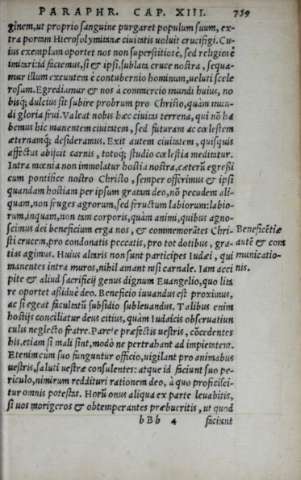 PARAPHR. CAP. XIII. 759
ginem, ut proprio sanguine purgaret populum suum, ex-
tra portam Hierosolymitanæ ciuitatis uoluit crucifigi. Cu-
ius exemplum oportet nos non superstitiose, sed religiose
imitari: id faciemus, si & ipsi, sublata cruce nostra, sequa-
mur illum exeuntem è contubernio hominum, ueluti scele
rosum. Egrediamur & nos à commercio mundi huius, no
bisq; dulcius sit subire probrum pro Christo, quàm mun-
di gloria frui. Valeat nobis hæc ciuitas terrena, qui nõ ha
bemus hic manentem ciuitatem, sed futuram ac cœlestem
æternamq; desideramus. Exit autem ciuitatem, quisquis
affectus abijcit carnis, totoq; studio cœlestia meditatur.
Intra mœnia non immolatur hostia nostra, cæterū egressi
cum pontifice nostro Christo, semper offerimus & ipsi
quandam hostiam per ipsum gratam deo, nõ pecudem ali-
quam, non fruges agrorum, sed fructum labiorum: labio-
rum, inquam, non tam corporis, quàm animi, quibus agno-
scimus dei beneficium erga nos, & commemorātes Chri-
sti crucem, pro condonatis peccatis, pro tot dotibus, gra-
tias agimus. Huius altaris non sunt participes Iudæi, qui
manentes intra muros, nihil amant nisi carnale. Iam acci
pite & aliud sacrificij genus dignum Euangelio, quo lita
re oportet assidue deo. Beneficio iuuandus est proximus,
ac si egeat facultatū subsidio subleuandus. Talibus enim
hostijs conciliatur deus citius, quàm Iudaicis obseruatiun
culis neglecto fratre. Parete præfectis uestris, cōcedentes
his, etiam si mali sint, modò ne pertrahant ad impietatem.
Etenim cum suo funguntur officio, uigilant pro animabus
uestris, saluti uestræ consulentes: atque id faciunt suo pe-
riculo, nimirum reddituri rationem deo, à quo proficisci-
tur omnis potestas. Horū onus aliqua ex parte leuabitis,
si uos morigeros & obtemperantes præbueritis, ut quod
bBb 4 faciunt
Beneficētiæ
autē & com
municatio-
nis.